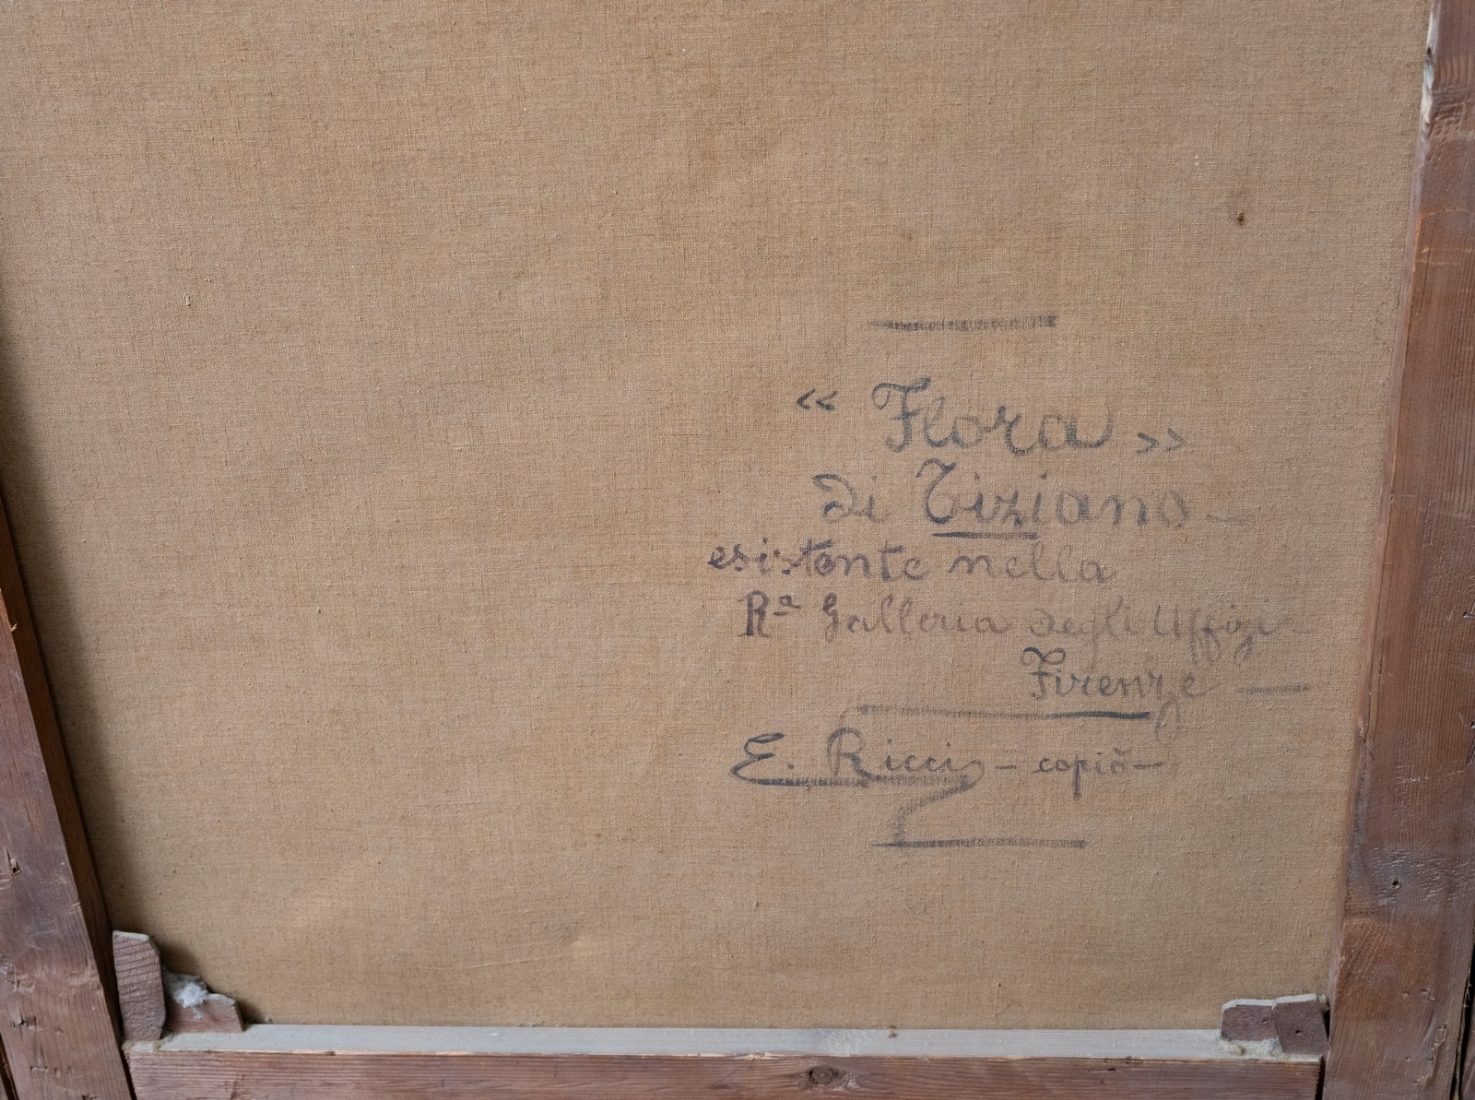 « Flora »
di Tiziano –
esistente nella
Rª Galleria degli Uffizi –
Firenze —
E. Ricci – copiò –